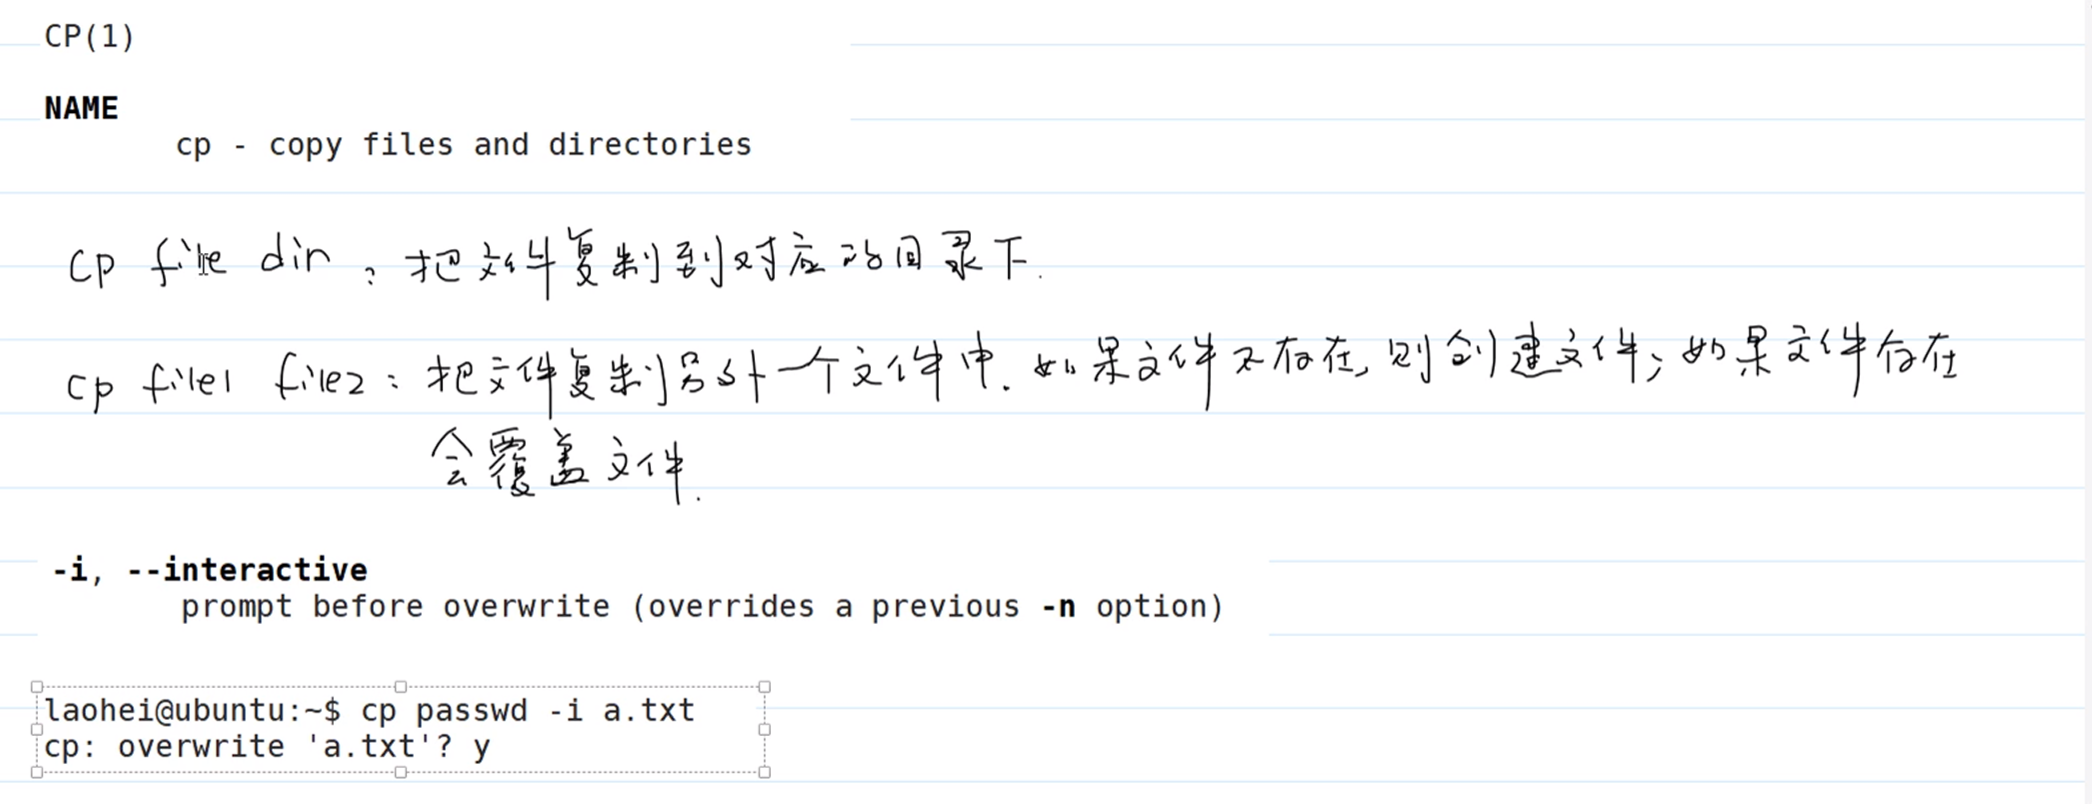 CP(1)
NAME
cp - copy files and directories
cp file dir : 把文件复制到对应的目录下.
cp file1 file2 : 把文件复制另外一个文件中. 如果文件不存在, 则创建文件; 如果文件存在
会覆盖文件.
-i, --interactive
prompt before overwrite (overrides a previous -n option)
laohei@ubuntu:~$ cp passwd -i a.txt
cp: overwrite 'a.txt'? y